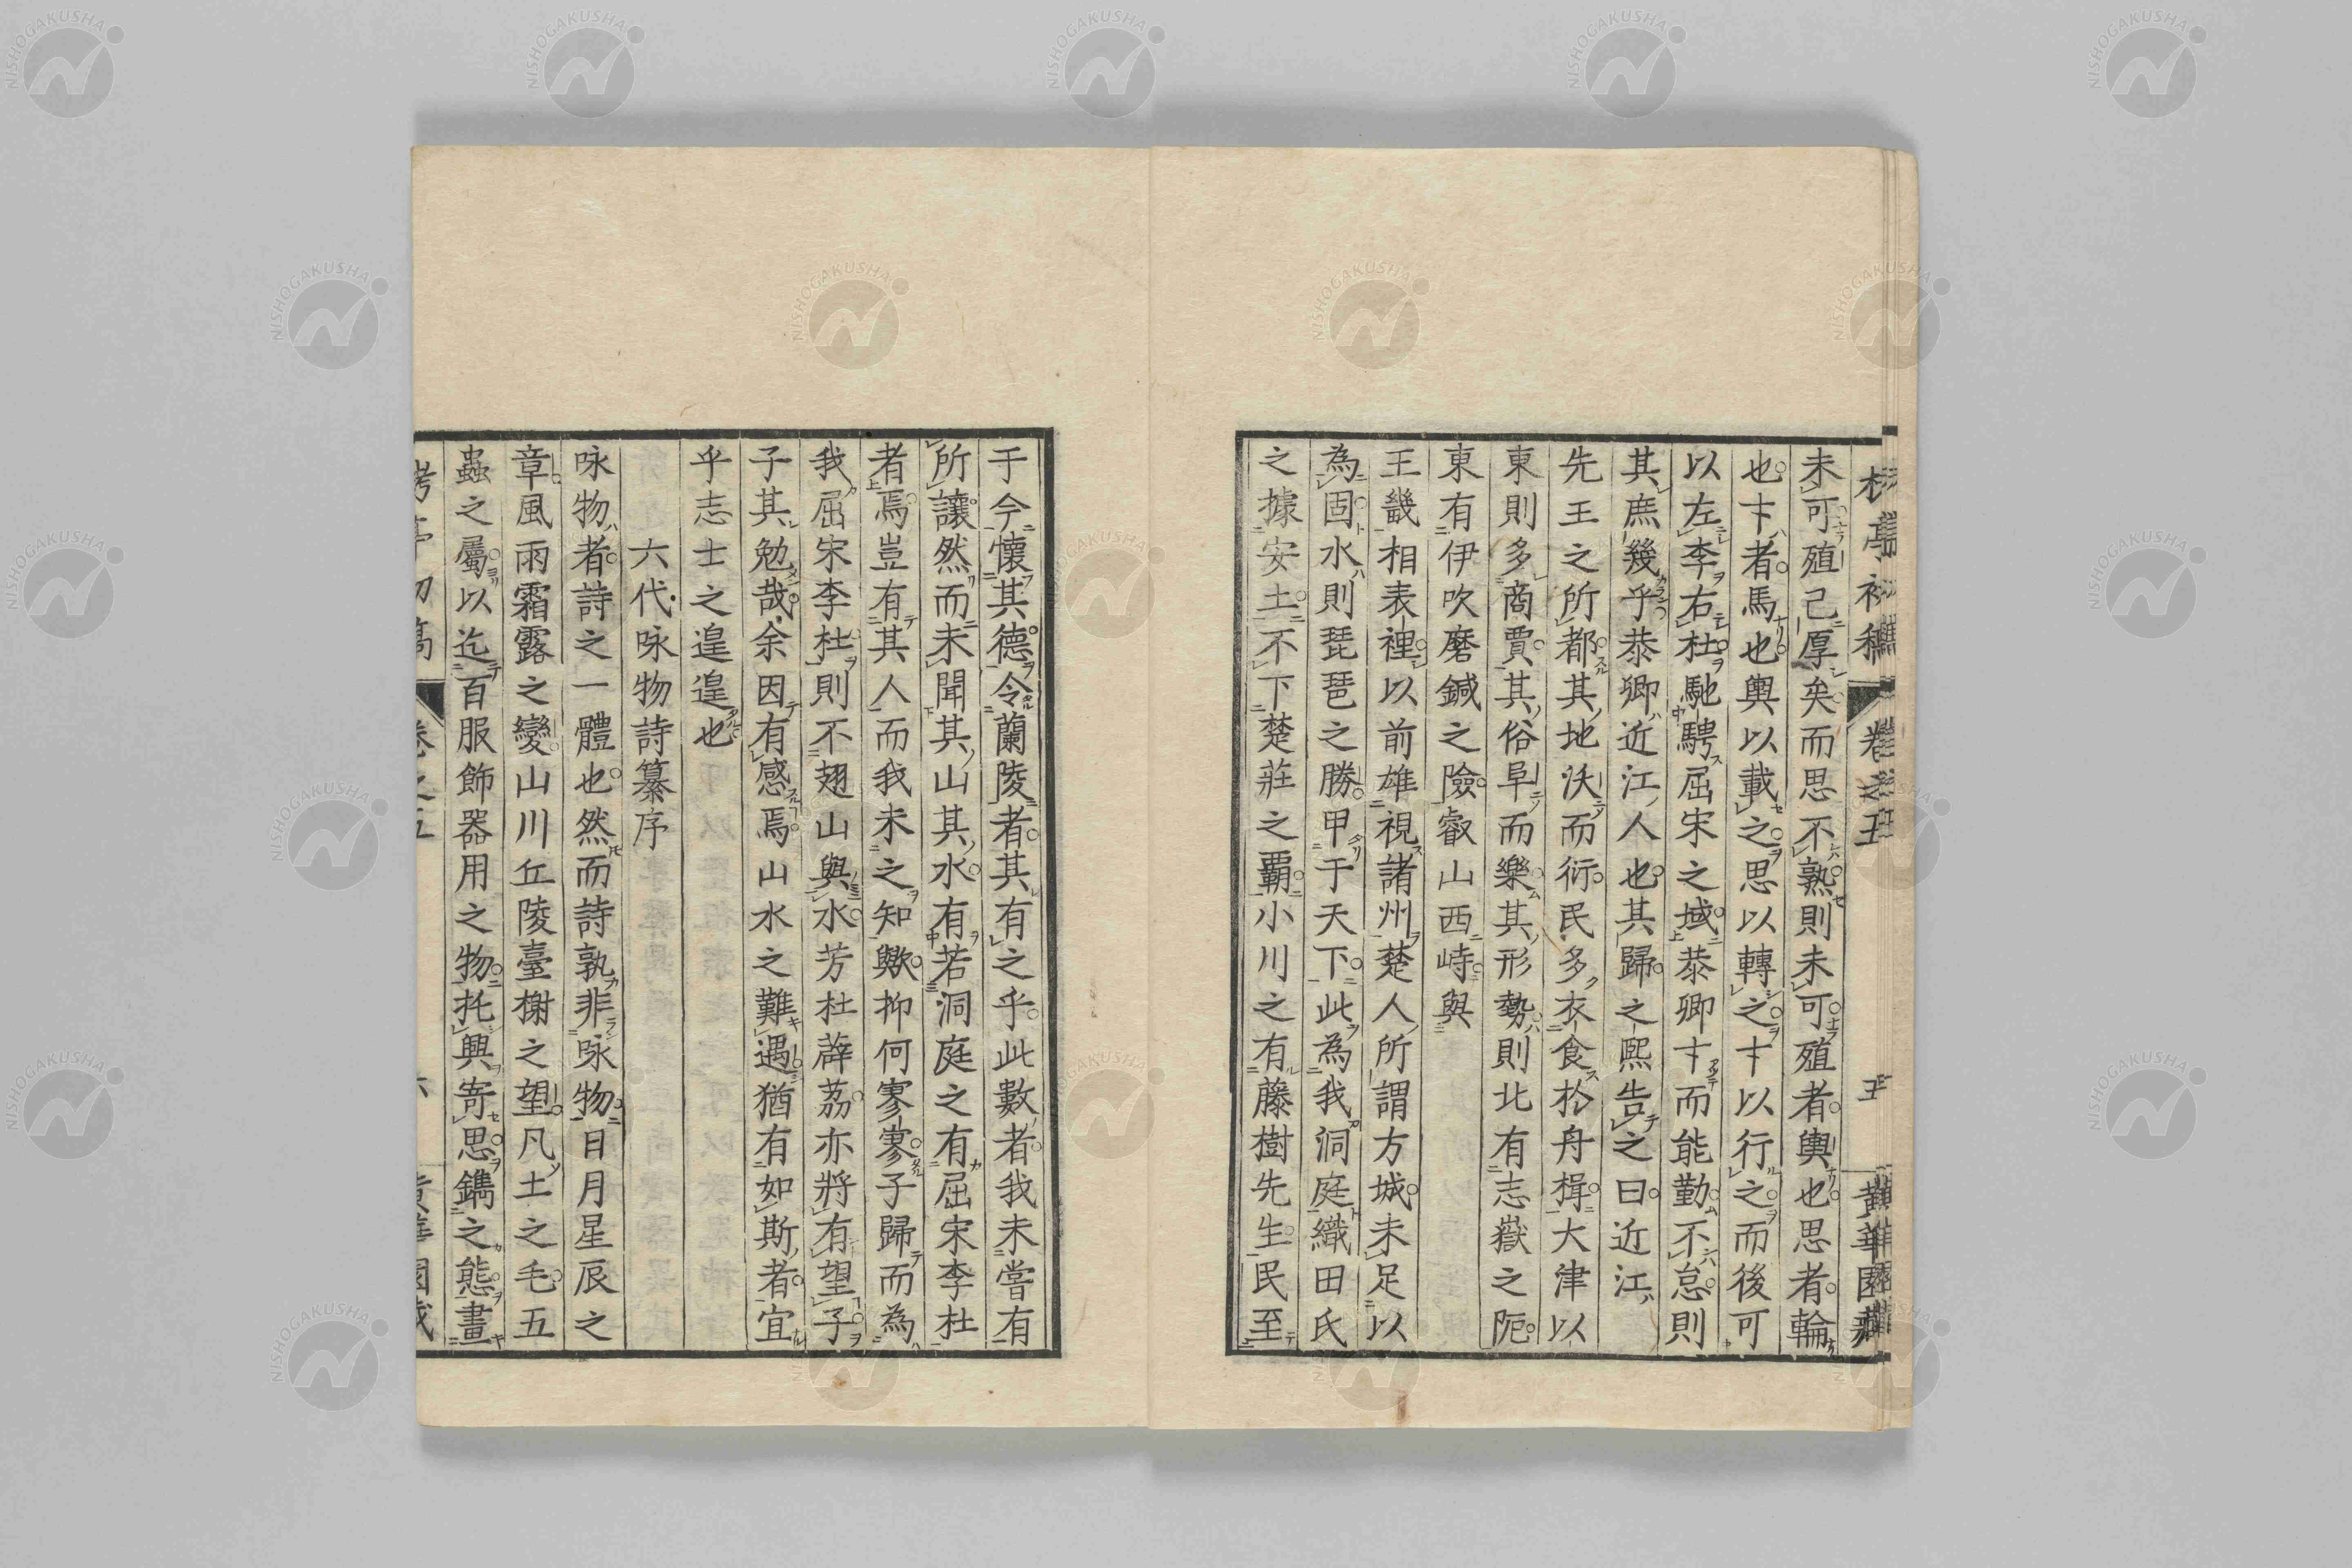 未可殖己厚矣而思不熟則未可殖者輿也思者輪
也才者馬也輿以載之思以轉之才以行之而後可
以左李右杜馳騁屈宋之域恭卿才而能勤不怠則
其庶幾乎恭卿近江人也其歸之熙告之曰近江
先王之所都其地沃而衍民多衣食於舟楫大津以
東則多商賈其俗早而樂其形勢則北有志嶽之阨
東有伊吹磨鍼之險叡山西峙與
王畿相表裡以前雄視諸州楚人所謂方城未足以
為固水則琵琶之勝甲于天下此為我洞庭織田氏
之據安土不下楚莊之覇小川之有藤樹先生民至
于今懷其德令蘭陵者其有之乎此數者我未嘗有
所讓然而未聞其山其水有若洞庭之有屈宋李杜
者焉豈有其人而我未之知歟抑何寥寥子歸而為
我屈宋李杜則不翅山與水芳杜薜荔亦將有望子
子其勉哉余因有感焉山水之難遇猶有如斯者宜
乎志士之遑遑也
六代咏物詩纂序
咏物者詩之一體也然而詩孰非咏物日月星辰之
章風雨霜露之變山川丘陵臺榭之望凡土之毛五
蟲之屬以迄百服飾器用之物托興寄思鐫之態畫
卷之五
黃華園藏